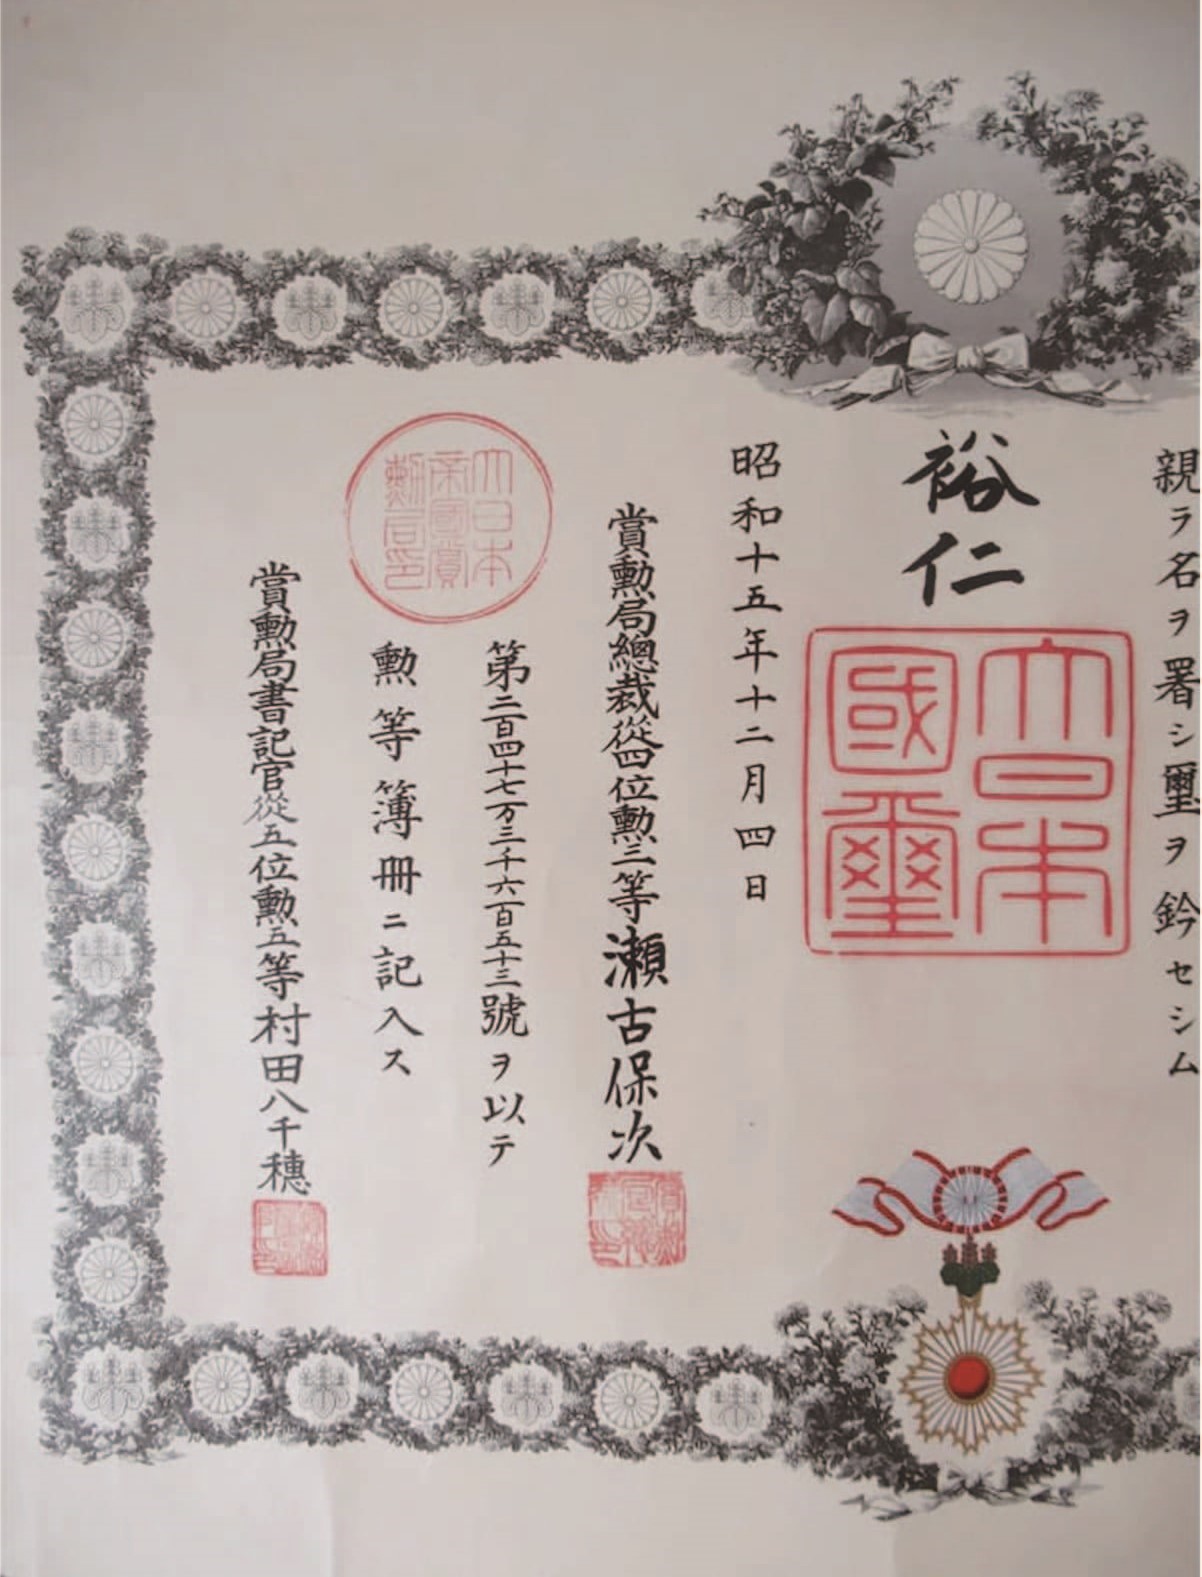 親ラ名ヲ署シ璽ヲ鈐セシム
裕仁
大日本
國璽
昭和十五年十二月四日
賞勲局總裁從四位勲三等瀬古保次
第二百四十七万三千六百五十三號ヲ以テ
勲等簿冊ニ記入ス
大日本
帝國賞
勲局印
賞勲局書記官從五位勲五等村田八千穂